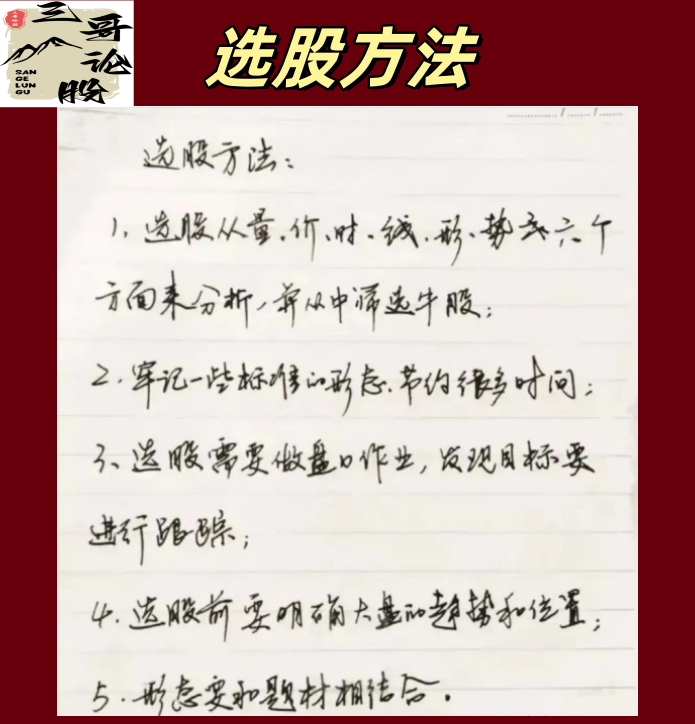 三哥论股
SAN
GE
LUN
GU
选股方法
选股方法:
1、选股从量、价、时、线、形、势这六个
方面来分析,并从中筛选牛股;
2、牢记一些标准的形态、节约很多时间;
3、选股需要做盘口作业,发现目标要
进行跟踪;
4、选股前要明确大盘的趋势和位置;
5、形态要和题材相结合。